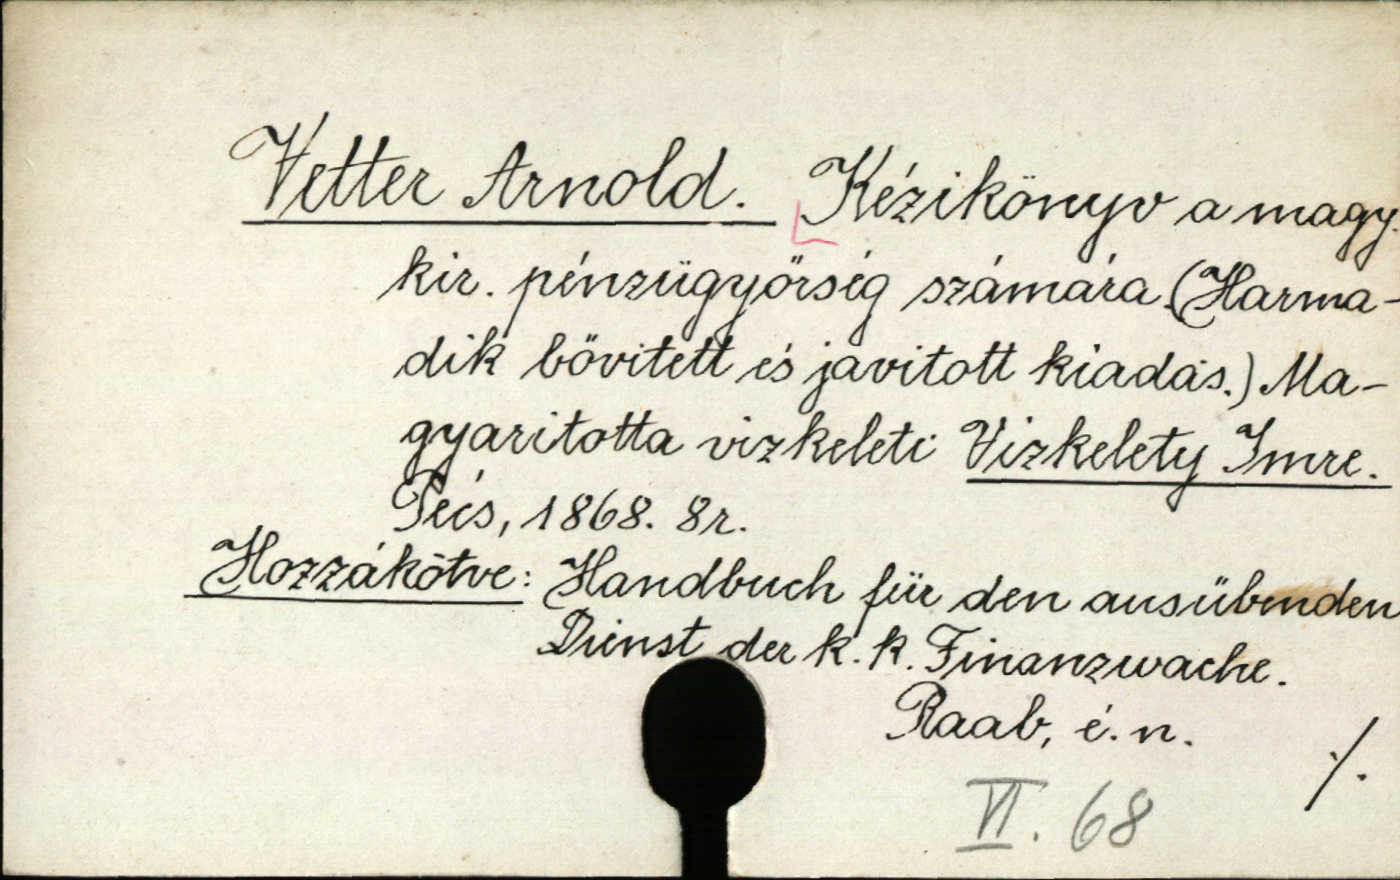 Vetter Arnold. Kézikönyv a magy.
kir. pénzügyőrség számára. (Harma-
dik bővitett és javitott kiadás.) Ma-
gyaritotta vizkeleti Vizkelety Imre.
Pécs, 1868. 8r.
Hozzákötve: Handbuch für den ausübenden
Dienst der k. k. Finanzwache.
Raab, é. n.
./.
VI. 68